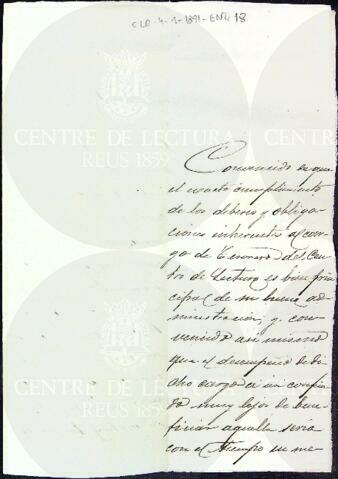 CLR-4-1-1891-ENR 18
CENTRE DE LECTURA
REUS 1859
Convencido de que
el exacto cumplimiento
de los deberes y obliga-
ciones inherentes al car-
go de Tesorero del Cen-
tro de Lectura es base prin-
cipal de su buena ad-
ministracion; y con-
vencido asi mismo
que el desempeño de di-
cho cargo
muy lejos de bene-
ficiar aquella seria
con el tiempo su me-
CENTRE DE LECTURA
REUS 1859